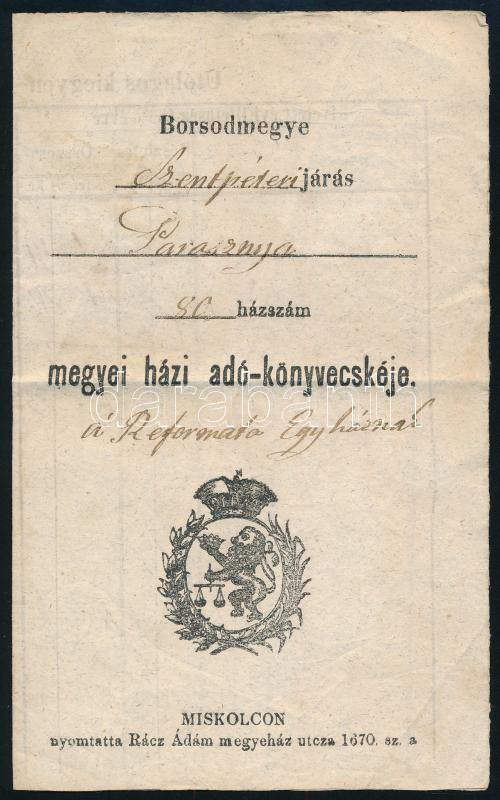 Borsodmegye
Szentpéteri járás
Parasznya
80 házszám
megyei házi adó-könyvecskéje.
darabanth
á Reformata Egyháznak
MISKOLCON
nyomtatta Rácz Ádám megyeház utcza 1670. sz. a